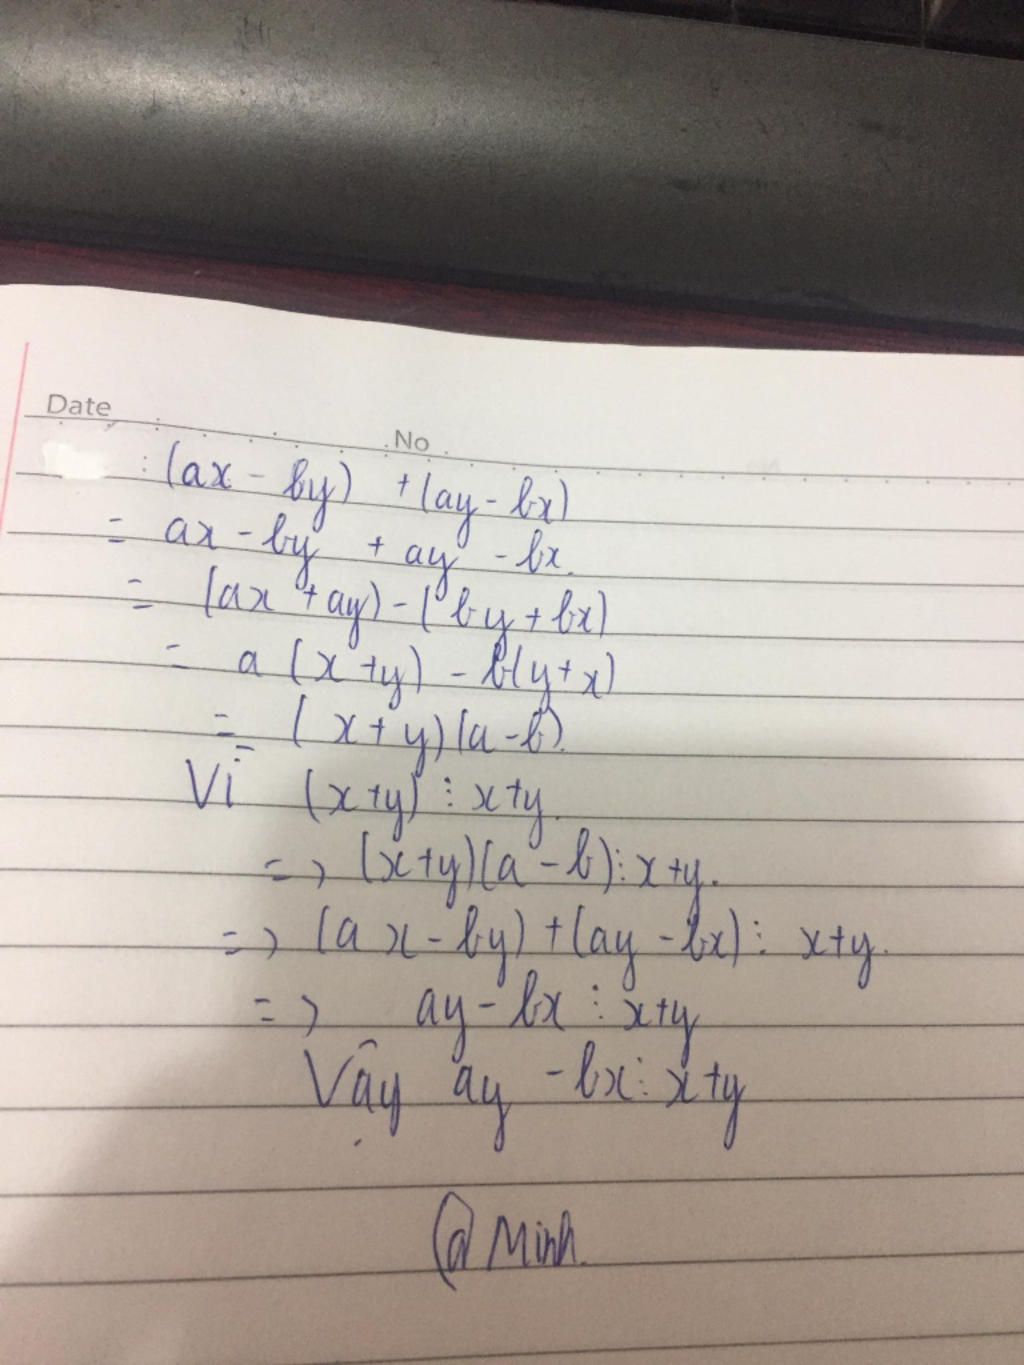 Date
No
: (ax - by) + (ay - bx)
= ax - by + ay - bx.
= (ax + ay) - (by + bx)
= a (x + y) - b(y + x)
= (x + y)(a - b).
Vì (x + y) ⋮ x + y.
=> (x + y)(a - b) ⋮ x + y.
=> (ax - by) + (ay - bx) ⋮ x + y.
=> ay - bx ⋮ x + y
Vậy ay - bx ⋮ x + y
@ Minh.